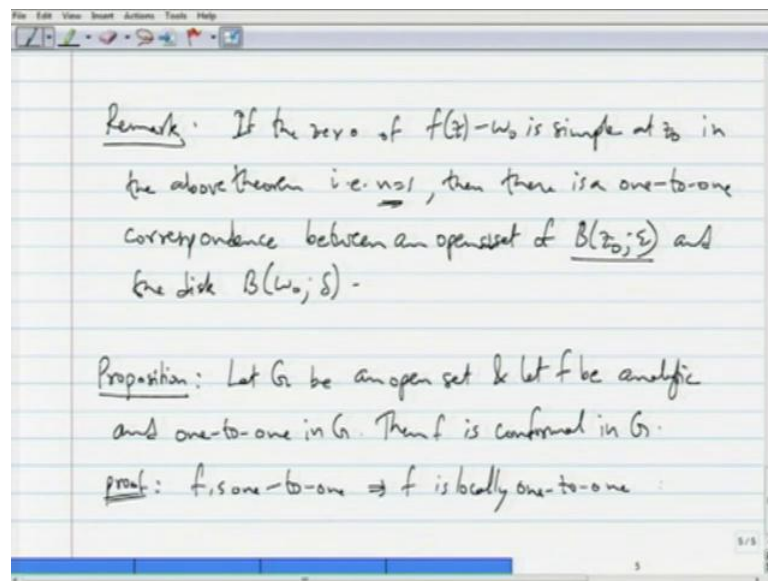 File Edit View Insert Actions Tools Help
Remark. If the zero of f(z)-w₀ is simple at z₀ in
the above theorem i.e. n=1, then there is a one-to-one
correspondence between an open set of B(z₀; ε) and
the disk B(w₀; δ).
Proposition: Let G be an open set & let f be analytic
and one-to-one in G. Then f is conformal in G.
proof: f is one-to-one ⇒ f is locally one-to-one
5/5
5